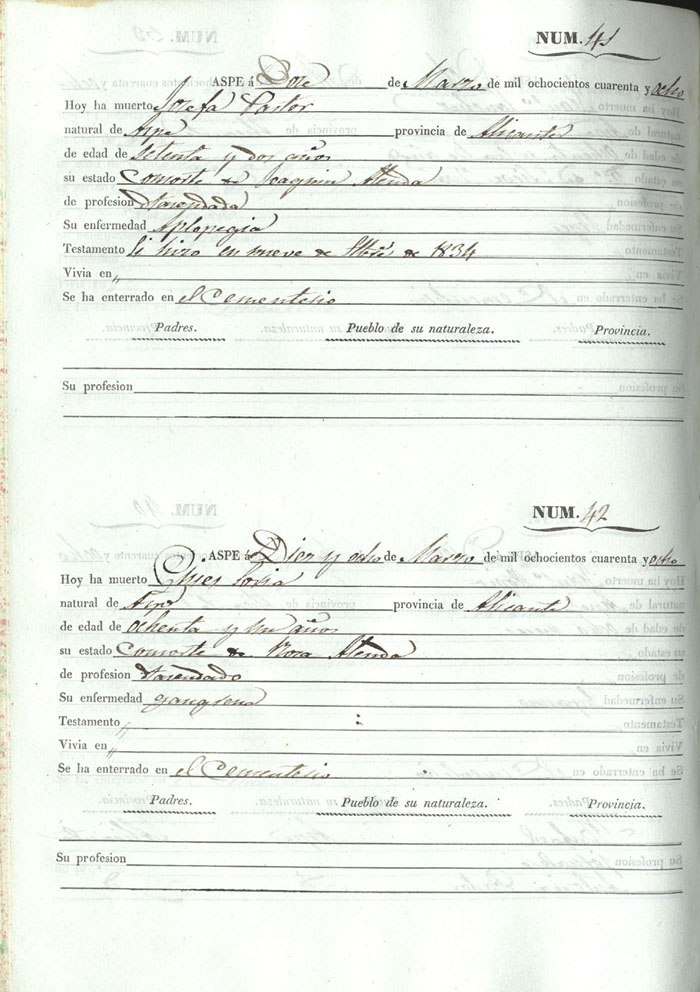 NUM. 41
ASPE á Doce de Marzo de mil ochocientos cuarenta y ocho
Hoy ha muerto Josefa Pastor
natural de Aspe provincia de Alicante
de edad de Setenta y dos años
su estado Consorte de Joaquin
de profesion
Su enfermedad Aplopegia
Testamento Si hizo en nueve de de 1834
Vivia en "
Se ha enterrado en el Cementerio
Padres. Pueblo de su naturaleza. Provincia.
Su profesion
NUM. 42
ASPE á Diez y ocho de Marzo de mil ochocientos cuarenta y ocho
Hoy ha muerto
natural de provincia de Alicante
de edad de ochenta y un años
su estado Consorte de Rosa
de profesion
Su enfermedad gangrena
Testamento "
Vivia en "
Se ha enterrado en el Cementerio
Padres. Pueblo de su naturaleza. Provincia.
Su profesion